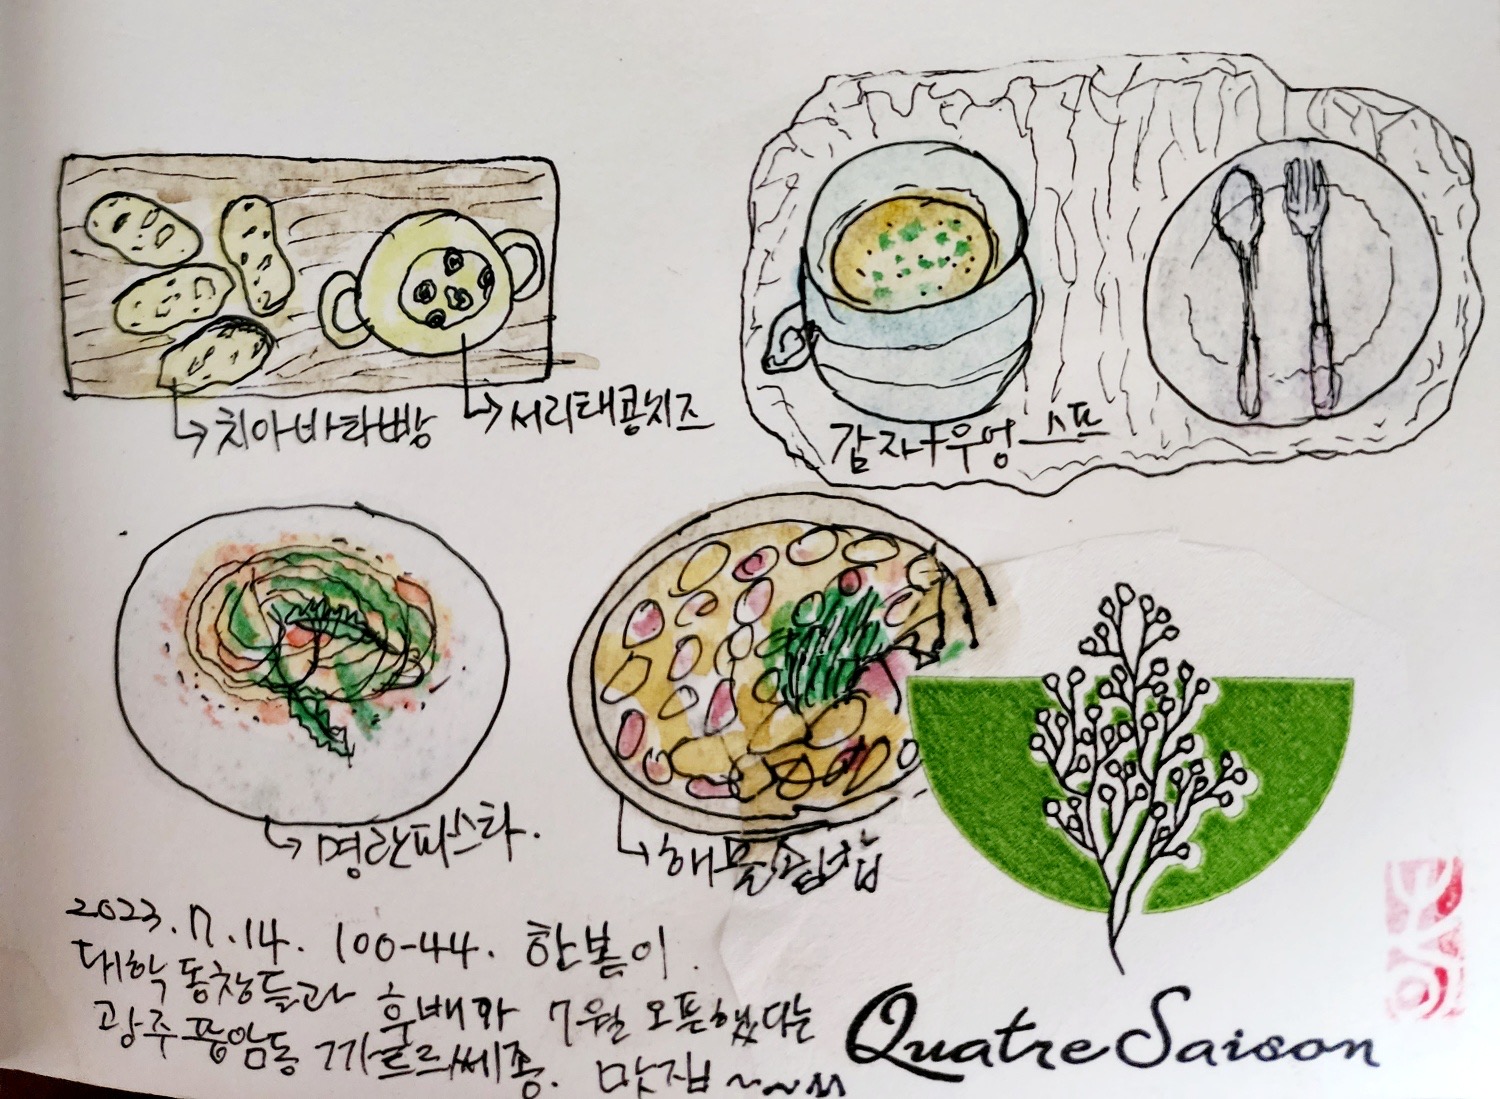 치아바타빵
서리태콩치즈
감자+우엉 스프
명란파스타.
해물솥밥
2023.7.14. 100-44. 한봄이.
대학 동창들과 후배와 7월 오픈했다는
광주 풍암동 꺄트르쎄종. 맛집~~
Quatre Saison